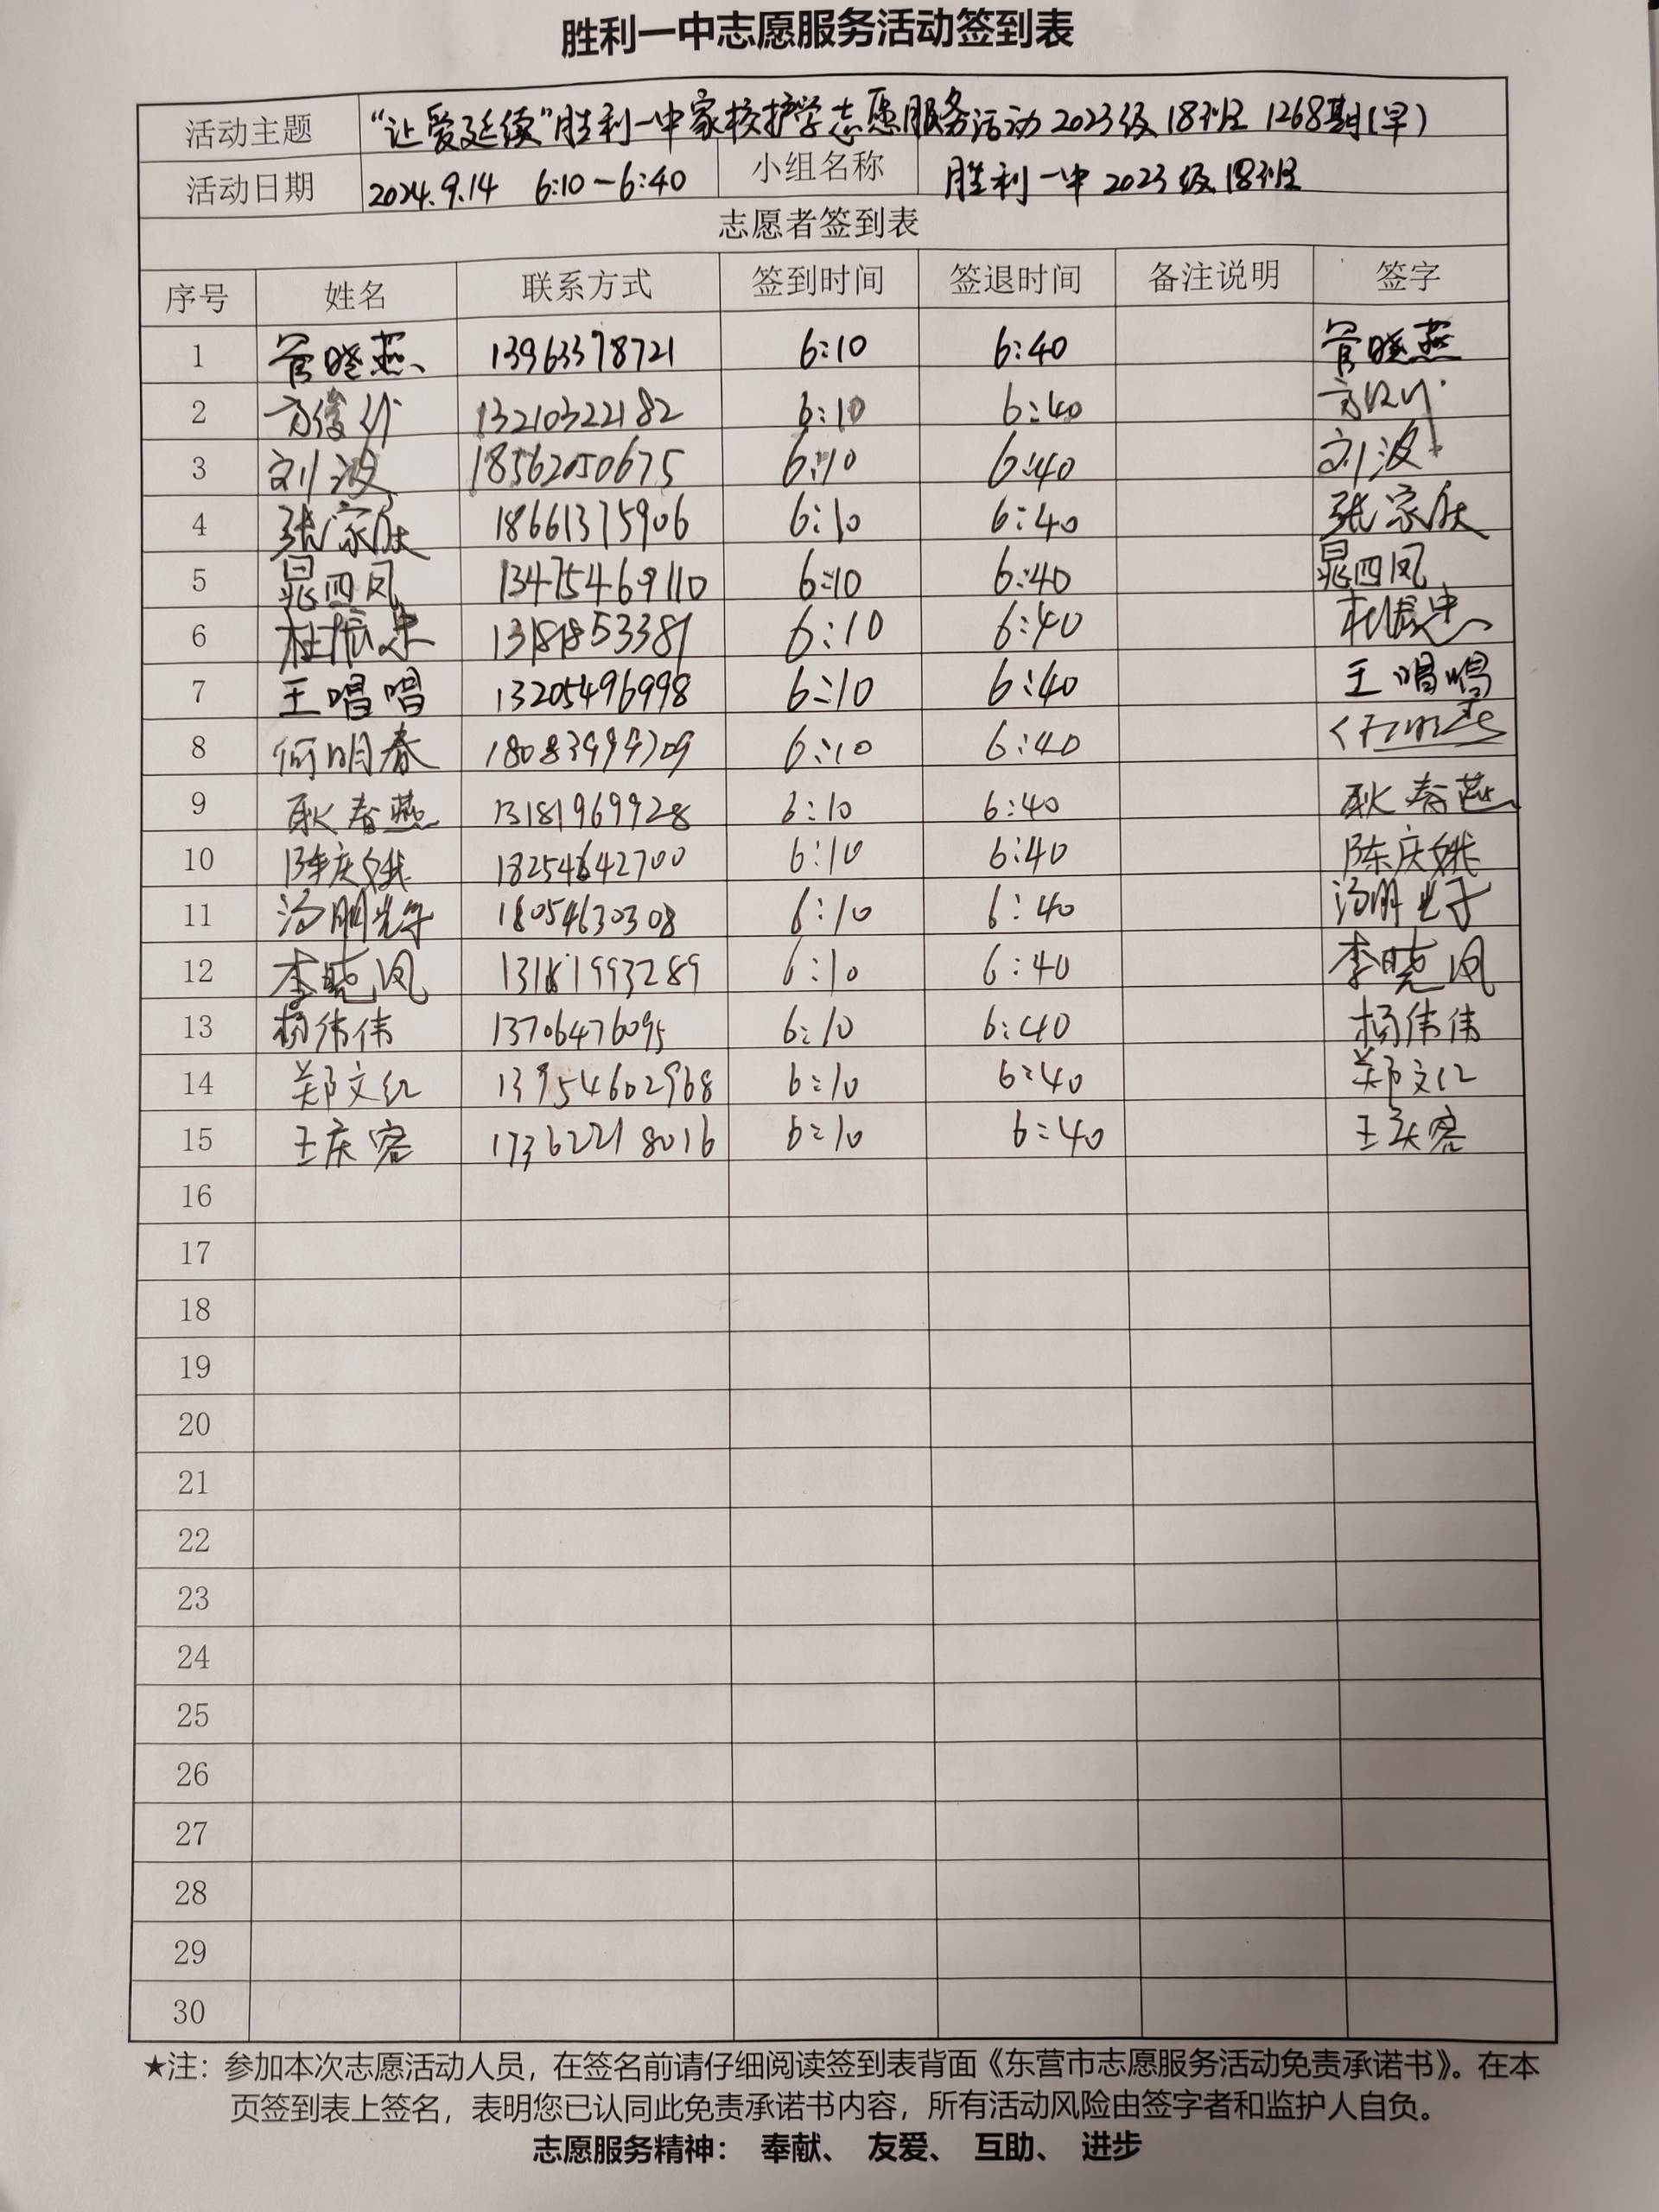 胜利一中志愿服务活动签到表
活动主题 “让爱延续”胜利一中家校护学志愿服务活动 2023级 18班 1268期(早)
活动日期 2024.9.14 6:10-6:40 小组名称 胜利一中 2023级18班
志愿者签到表
序号 姓名 联系方式 签到时间 签退时间 备注说明 签字
1 管晓燕 13963378721 6:10 6:40 管晓燕
2 13210322182 6:10 6:40
3 刘波 18562050675 6:10 6:40 刘波
4 18661375906 6:10 6:40
5 晁四凤 13475469110 6:10 6:40 晁四凤
6 13181853381 6:10 6:40
7 王唱唱 13205496998 6:10 6:40 王唱唱
8 何明春 6:10 6:40
9 耿春燕 13181969928 6:10 6:40 耿春燕
10 陈庆娥 6:10 6:40 陈庆娥
11 18054630308 6:10 6:40
12 李晓凤 13181993289 6:10 6:40 李晓凤
13 杨伟伟 13706476095 6:10 6:40 杨伟伟
14 郑文红 13954602968 6:10 6:40 郑文红
15 王庆容 17362218016 6:10 6:40 王庆容
16
17
18
19
20
21
22
23
24
25
26
27
28
29
30
★注：参加本次志愿活动人员，在签名前请仔细阅读签到表背面《东营市志愿服务活动免责承诺书》。在本
页签到表上签名，表明您已认同此免责承诺书内容，所有活动风险由签字者和监护人自负。
志愿服务精神： 奉献、 友爱、 互助、 进步